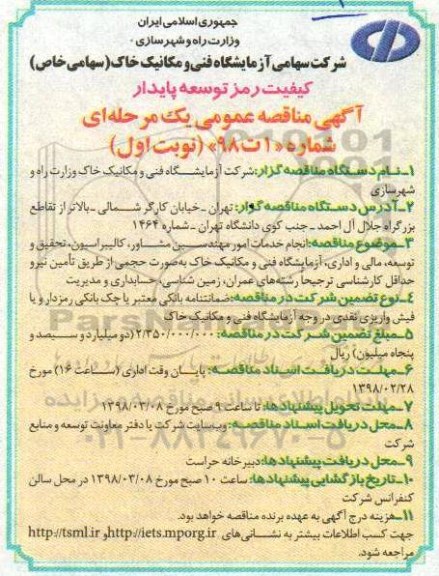 جمهوری اسلامی ایران
وزارت راه و شهر سازی
شرکت سهامی آزمایشگاه فنی و مکانیک خاک (سهامی خاص)
کیفیت رمز توسعه پایدار
آگهی مناقصه عمومی یک مرحله‌ای
شماره «۱ت۹۸» (نوبت اول)
۱ـ نام دستگاه مناقصه گزار: شرکت آزمایشگاه فنی و مکانیک خاک وزارت راه و
شهرسازی
۲ـ آدرس دستگاه مناقصه گزار: تهران ـ خیابان کارگر شمالی ـ بالاتر از تقاطع
بزرگراه جلال آل احمد ـ جنب کوی دانشگاه تهران ـ شماره ۱۴۶۴
۳ـ موضوع مناقصه: انجام خدمات امور مهندسین مشاور، کالیبراسیون، تحقیق و
توسعه، مالی و اداری، آزمایشگاه فنی و مکانیک خاک به‌صورت حجمی از طریق تأمین نیرو
حداقل کارشناسی ترجیحا رشته‌های عمران، زمین شناسی، حسابداری و مدیریت
۴ـ نوع تضمین شرکت در مناقصه: ضمانتنامه بانکی معتبر یا چک بانکی رمزدار و یا
فیش واریزی نقدی در وجه آزمایشگاه فنی و مکانیک خاک
۵ـ مبلغ تضمین شرکت در مناقصه: ۲/۳۵۰/۰۰۰/۰۰۰ (دو میلیارد و سیصد و
پنجاه میلیون) ریال
۶ـ مهلت دریافت اسناد مناقصه: پایان وقت اداری (ساعت ۱۶) مورخ
۱۳۹۸/۰۲/۲۸
۷ـ مهلت تحویل پیشنهادها: تا ساعت ۹ صبح مورخ ۱۳۹۸/۰۳/۰۸
۸ـ محل دریافت اسناد مناقصه: وب‌سایت شرکت یا دفتر معاونت توسعه و منابع
شرکت
۹ـ محل دریافت پیشنهادها: دبیرخانه حراست
۱۰ـ تاریخ بازگشایی پیشنهادها: ساعت ۱۰ صبح مورخ ۱۳۹۸/۰۳/۰۸ در محل سالن
کنفرانس شرکت
۱۱ـ هزینه درج آگهی به عهده برنده مناقصه خواهد بود.
جهت کسب اطلاعات بیشتر به نشانی‌های http://iets.mporg.ir و http://tsml.ir
مراجعه شود.
۰۲۱-۸۸۳۴۹۶۷۰-۵